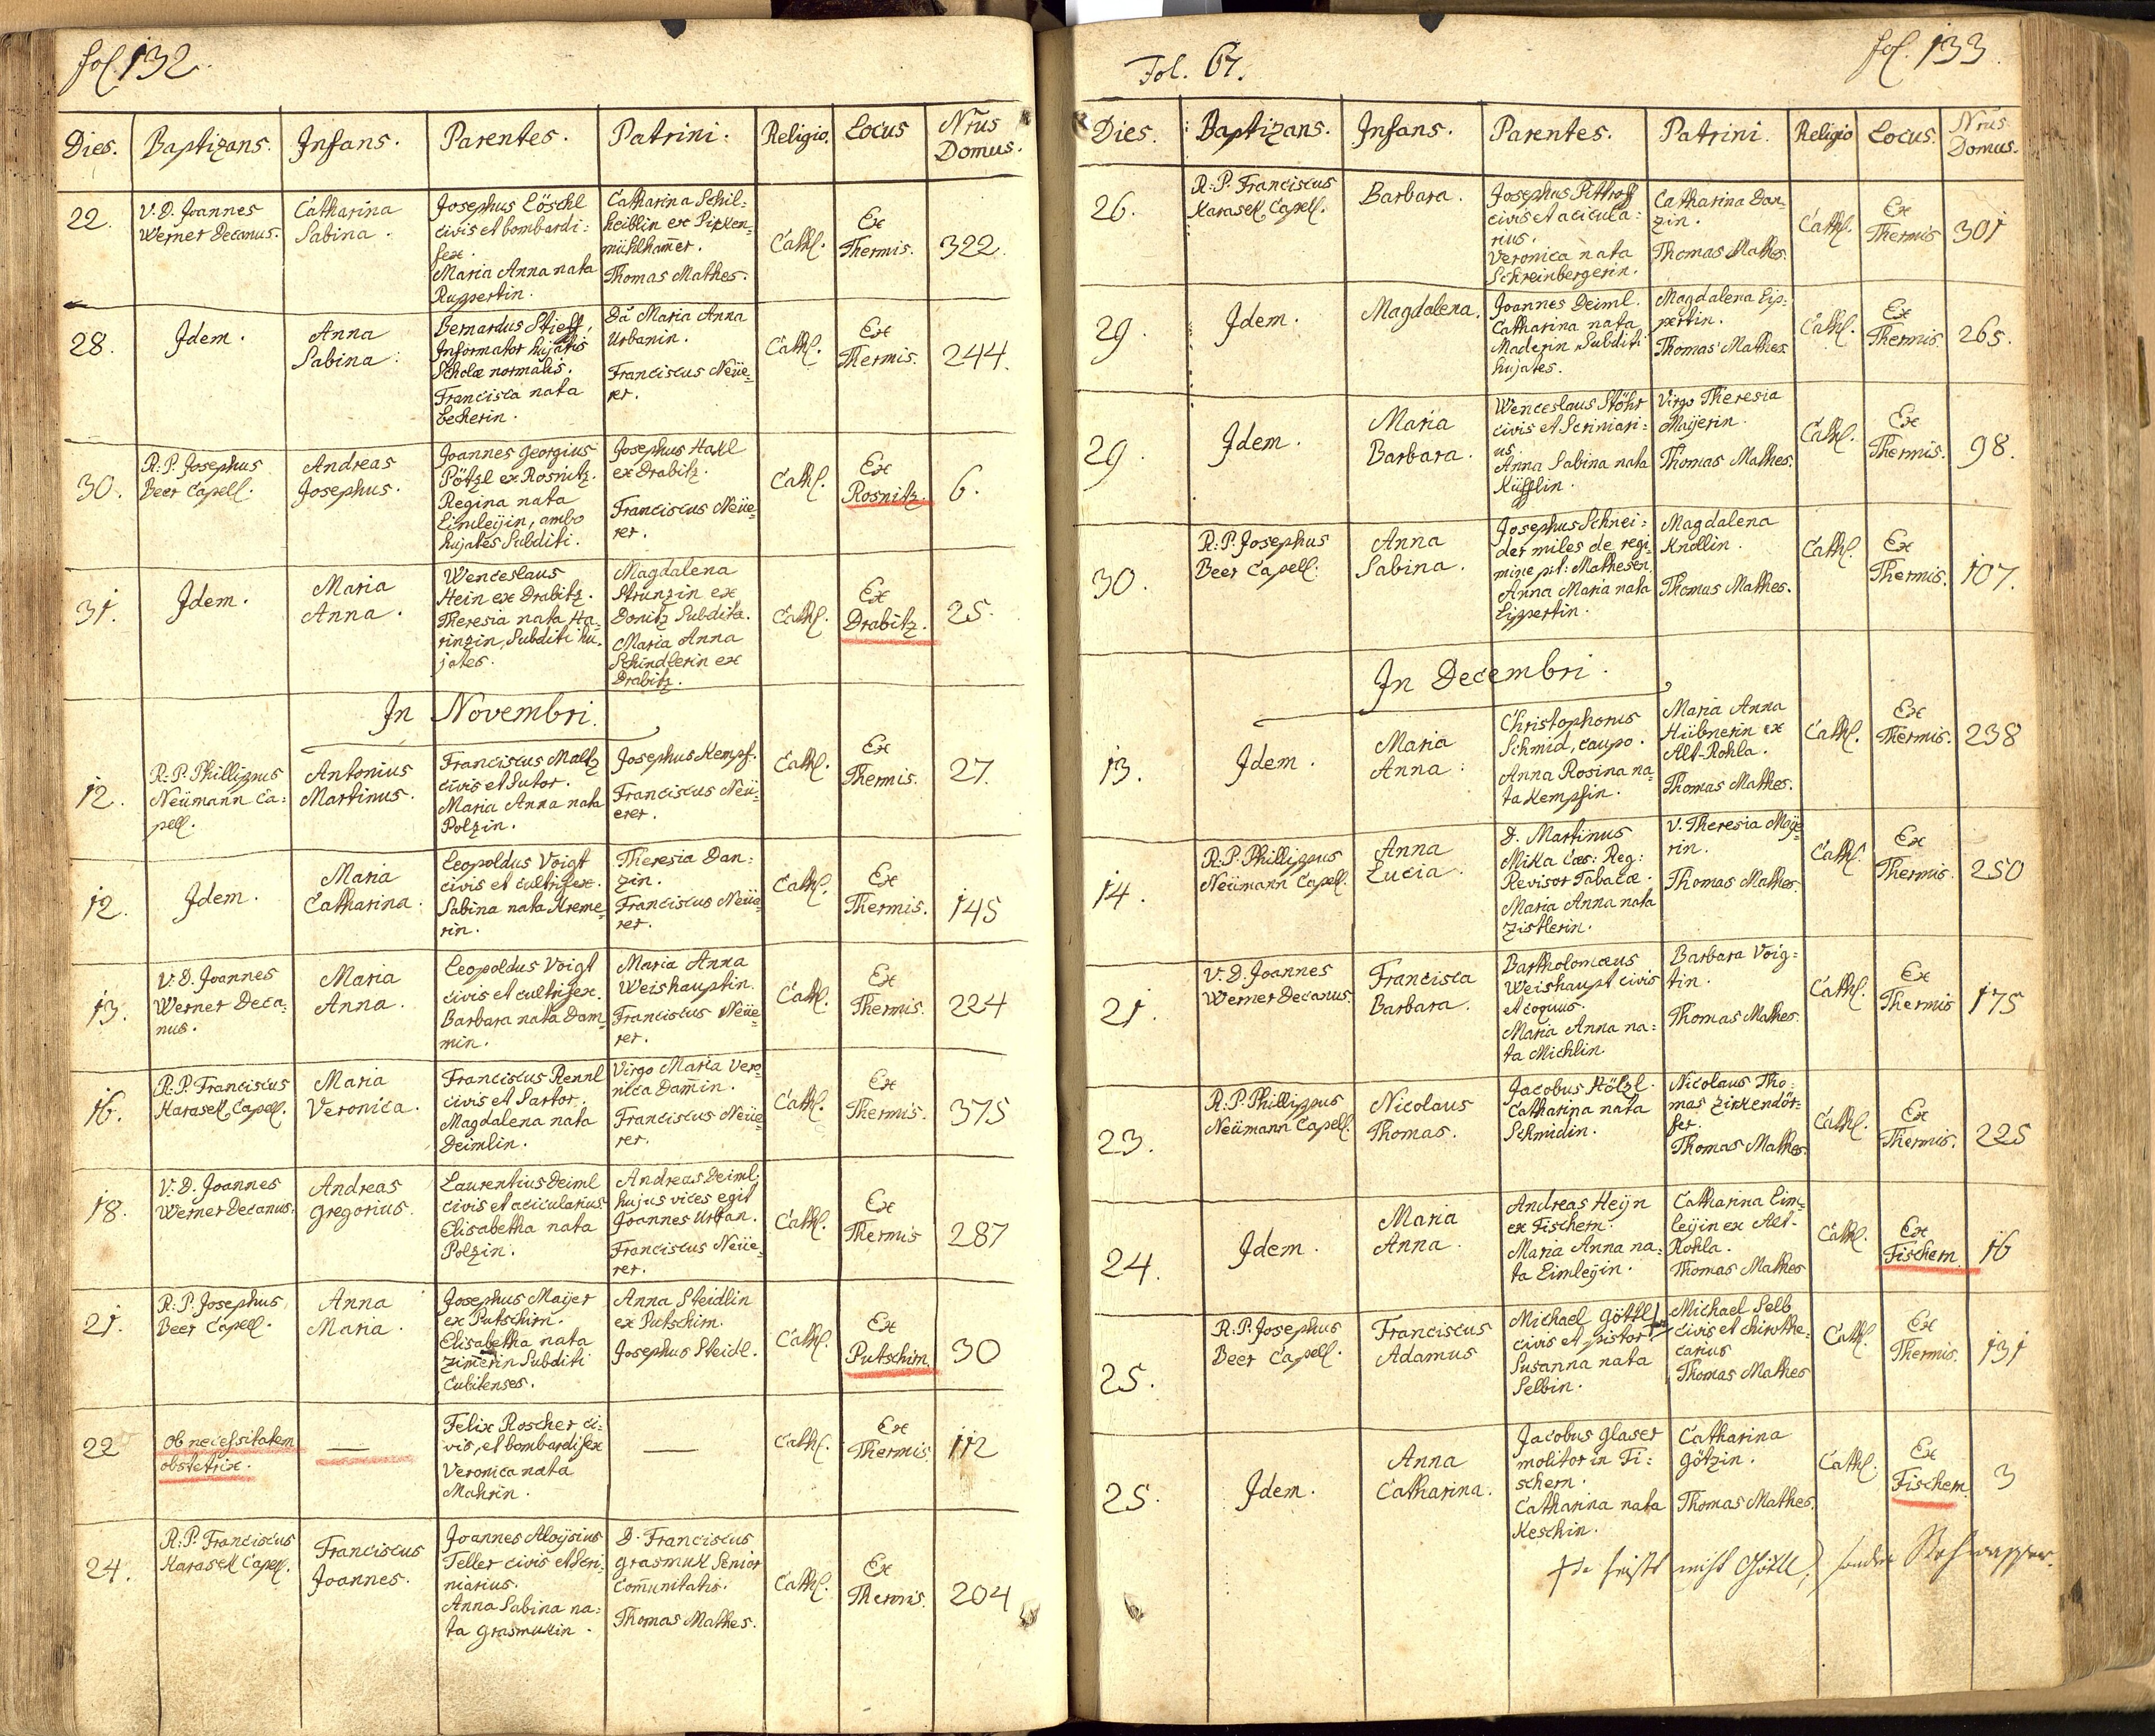 fol. 132.
Dies. Baptizans. Infans. Parentes. Patrini. Religio. Locus Nrus Domus.
22. V. D. Joannes
Werner Decanus.
Catharina
Sabina.
Josephus Löschl
civis et bombardi:
fex.
Maria Anna nata
Ruppertin.
Catharina Schil:
heiblin ex Pirken-
mühlham̄er.
Thomas Mathes.
Cath.
Ex
Thermis.
322.
28. Idem.
Anna
Sabina.
Bernardus Stieff,
Informator hujatis
Scholæ normalis.
Francisca nata
Lecherin.
Da Maria Anna
Urbanin.
Franciscus Neüe:
rer.
Cath.
Ex
Thermis.
244.
30. R: P. Josephus
Beer Capell.
Andreas
Josephus.
Joannes Georgius
Pötzl ex Rosnitz.
Regina nata
Eimleÿin, ambo
hujates Subditi.
Josephus Hakl
ex Drabitz.
Franciscus Neüe
rer.
Cath.
Ex
Rosnitz.
6.
31. Idem.
Maria
Anna.
Wenceslaus
Hein ex Drabitz.
Theresia nata Ha-
rinzin, Subditi hu-
jates.
Magdalena
Strunzin ex
Donitz Subdita.
Maria Anna
Schindlerin ex
Drabitz.
Cath.
Ex
Drabitz.
25.
In Novembri.
12. R: P. Phillippus
Neümann Ca:
pell.
Antonius
Martinus.
Franciscus Maltz
civis et Sutor.
Maria Anna nata
Polzin.
Josephus Kempf.
Franciscus Neü:
erer.
Cath.
Ex
Thermis.
27.
12. Idem.
Maria
Catharina.
Leopoldus Voigt
civis et cultrifex.
Sabina nata Kreme-
rin.
Theresia Dan:
zin.
Franciscus Neüe
rer.
Cath.
Ex
Thermis.
145
13. V. D. Joannes
Werner Deca:
nus.
Maria
Anna.
Leopoldus Voigt
civis et cultrifex.
Barbara nata Dam-
min.
Maria Anna
Weishauptin.
Franciscus Neüe
rer.
Cath.
Ex
Thermis.
224
16. R: P. Franciscus
Karasek, Capell.
Maria
Veronica.
Franciscus Rennl
civis et Sartor.
Magdalena nata
Deimlin.
Virgo Maria Vero-
nica Dam̄in.
Franciscus Neüe
rer.
Cath.
Ex
Thermis.
375
18. V. D. Joannes
Werner Decanus.
Andreas
Gregorius.
Laurentius Deiml
civis et acicularius.
Elisabetha nata
Polzin.
Andreas Deiml.
hujus vices egit
Joannes Urban.
Franciscus Neüe-
rer.
Cath.
Ex
Thermis
287
21. R: P. Josephus
Beer Capell.
Anna
Maria.
Josephus Maijer
ex Putschirn.
Elisabetha nata
Zim̄erin Subditi
Cubitenses.
Anna Steidlin
ex Putschirn.
Josephus Steidl.
Cath.
Ex
Putschirn.
30
22 Ob necessitatem
obstetrix.
—
Felix Roscher ci:
vis, et bombardifex
Veronica nata
Mahrin.
—
Cath.
Ex
Thermis
112
24. R: P. Franciscus
Karasek Capell.
Franciscus
Joannes.
Joannes Aloÿsius
Teller civis et Scri-
niarius.
Anna Sabina na:
ta Grasmukin.
D. Franciscus
Grasmuk Senior
Com̄unitatis.
Thomas Mathes.
Cath.
Ex
Thermis.
204
Fol. 67. fol. 133.
Dies. Baptizans. Infans. Parentes. Patrini. Religio Locus. Nrus Domus.
26. R: P. Franciscus
Karasek, Capell.
Barbara.
Josephus Pittroff
civis et acicula:
rius.
Veronica nata
Schreinbergerin.
Catharina Dan-
zin.
Thomas Mathes.
Cath.
Ex
Thermis
301
29. Idem.
Magdalena.
Joannes Deiml.
Catharina nata
Maderin, Subditi
hujates.
Magdalena Lip:
pertin.
Thomas Mathes.
Cath.
Ex
Thermis
265.
29. Idem.
Maria
Barbara.
Wenceslaus Stöhr
civis et Scriniari:
us.
Anna Sabina nata
Küfflin.
Virgo Theresia
Maijerin.
Thomas Mathes.
Cath.
Ex
Thermis.
98.
30. R: P. Josephus
Beer Capell.
Anna
Sabina.
Josephus Schnei:
der miles de regi-
mine pit: Mathesen.
Anna Maria nata
Lippertin.
Magdalena
Knollin.
Thomas Mathes.
Cath.
Ex
Thermis.
107.
In Decembri.
13. Idem.
Maria
Anna.
Christophorus
Schmid, caupo.
Anna Rosina na-
ta Kempfin.
Maria Anna
Hübnerin ex
Alt-Rohla.
Thomas Mathes.
Cath.
Ex
Thermis.
238
14. R: P. Phillippus
Neümann Capell.
Anna
Lucia.
D. Martinus
Mika Cæs: Reg:
Revisor Tabacæ.
Maria Anna nata
Zistlerin.
V. Theresia Maije-
rin.
Thomas Mathes.
Cath.
Ex
Thermis.
250
21. V. D. Joannes
Werner Decanus.
Francisca
Barbara.
Bartholomæus
Weishaupt civis
et coquus.
Maria Anna na:
ta Michlin.
Barbara Voig:
tin.
Thomas Mathes.
Cath.
Ex
Thermis
175
23. R: P. Phillippus
Neümann Capell.
Nicolaus
Thomas.
Jacobus Hölzl.
Catharina nata
Schmidin.
Nicolaus Tho:
mas Zirkendör:
fer.
Thomas Mathes.
Cath.
Ex
Thermis.
225
24. Idem.
Maria
Anna.
Andreas Heÿn
ex Fischern.
Maria Anna na:
ta Eimleÿin.
Catharina Eim-
leÿin ex Alt-
Rohla.
Thomas Mathes
Cath.
Ex
Fischern
16
25. R: P. Josephus
Beer Capell.
Franciscus
Adamus
Michael Göttl
civis et pistor
Susanna nata
Selbin.
Michael Selb
civis et chirothe-
carius
Thomas Mathes
Cath.
Ex
Thermis.
131
25. Idem.
Anna
Catharina.
Jacobus Glaser
molitor in Fi:
schern.
Catharina nata
Keschin.
Catharina
Götzin.
Thomas Mathes.
Cath.
Ex
Fischern
3
heist nicht Göttl,